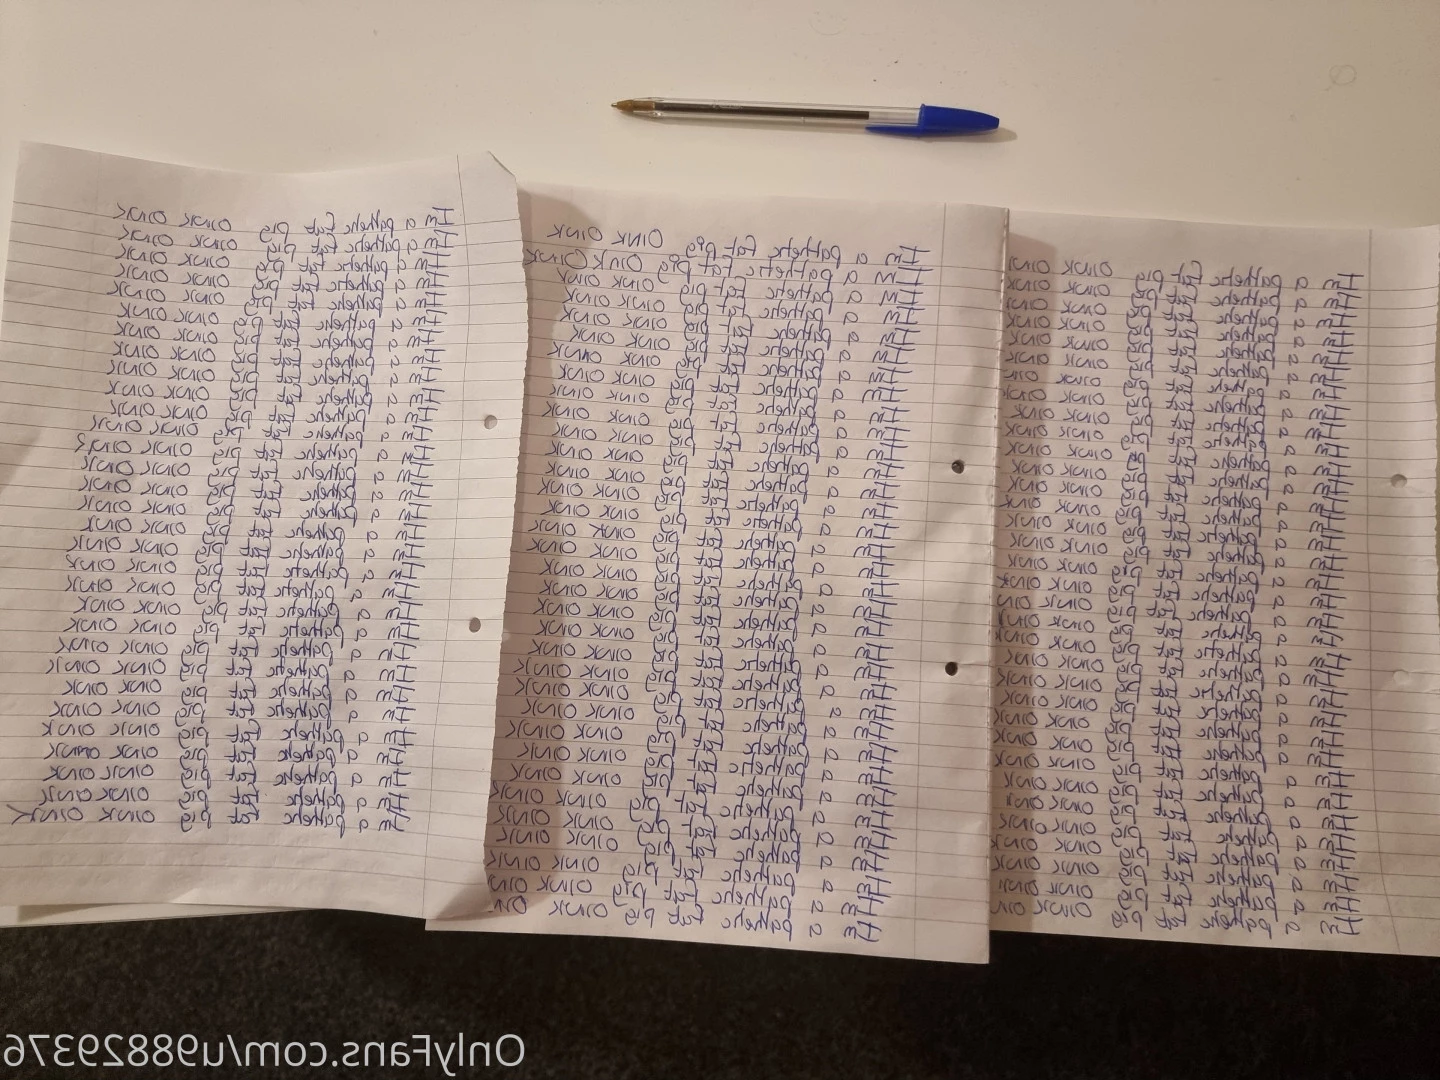 Im a pathetic fat pig OINK OINK
Im a pathetic fat pig OINK OINK
Im a pathetic fat pig OINK OINK
Im a pathetic fat pig OINK OINK
Im a pathetic fat pig OINK OINK
Im a pathetic fat pig OINK OINK
Im a pathetic fat pig OINK OINK
Im a pathetic fat pig OINK OINK
Im a pathetic fat pig OINK OINK
Im a pathetic fat pig OINK OINK
Im a pathetic fat pig OINK OINK
Im a pathetic fat pig OINK OINK
Im a pathetic fat pig OINK OINK
Im a pathetic fat pig OINK OINK
Im a pathetic fat pig OINK OINK
Im a pathetic fat pig OINK OINK
Im a pathetic fat pig OINK OINK
Im a pathetic fat pig OINK OINK
Im a pathetic fat pig OINK OINK
Im a pathetic fat pig OINK OINK
Im a pathetic fat pig OINK OINK
Im a pathetic fat pig OINK OINK
Im a pathetic fat pig OINK OINK
Im a pathetic fat pig OINK OINK
Im a pathetic fat pig OINK OINK
Im a pathetic fat pig OINK OINK
Im a pathetic fat pig OINK OINK
Im a pathetic fat pig OINK OINK
Im a pathetic fat pig OINK OINK
Im a pathetic fat pig OINK OINK
Im a pathetic fat pig OINK OINK
Im a pathetic fat pig OINK OINK
Im a pathetic fat pig OINK OINK
Im a pathetic fat pig OINK OINK
Im a pathetic fat pig OINK OINK
Im a pathetic fat pig OINK OINK
Im a pathetic fat pig OINK OINK
Im a pathetic fat pig OINK OINK
Im a pathetic fat pig OINK OINK
Im a pathetic fat pig OINK OINK
Im a pathetic fat pig OINK OINK
Im a pathetic fat pig OINK OINK
Im a pathetic fat pig OINK OINK
Im a pathetic fat pig OINK OINK
Im a pathetic fat pig OINK OINK
Im a pathetic fat pig OINK OINK
Im a pathetic fat pig OINK OINK
Im a pathetic fat pig OINK OINK
Im a pathetic fat pig OINK OINK
Im a pathetic fat pig OINK OINK
Im a pathetic fat pig OINK OINK
Im a pathetic fat pig OINK OINK
Im a pathetic fat pig OINK OINK
Im a pathetic fat pig OINK OINK
Im a pathetic fat pig OINK OINK
Im a pathetic fat pig OINK OINK
Im a pathetic fat pig OINK OINK
Im a pathetic fat pig OINK OINK
Im a pathetic fat pig OINK OINK
Im a pathetic fat pig OINK OINK
Im a pathetic fat pig OINK OINK
Im a pathetic fat pig OINK OINK
Im a pathetic fat pig OINK OINK
Im a pathetic fat pig OINK OINK
Im a pathetic fat pig OINK OINK
Im a pathetic fat pig OINK OINK
Im a pathetic fat pig OINK OINK
Im a pathetic fat pig OINK OINK
Im a pathetic fat pig OINK OINK
Im a pathetic fat pig OINK OINK
Im a pathetic fat pig OINK OINK
Im a pathetic fat pig OINK OINK
Im a pathetic fat pig OINK OINK
Im a pathetic fat pig OINK OINK
Im a pathetic fat pig OINK OINK
Im a pathetic fat pig OINK OINK
Im a pathetic fat pig OINK OINK
Im a pathetic fat pig OINK OINK
Im a pathetic fat pig OINK OINK
Im a pathetic fat pig OINK OINK
Im a pathetic fat pig OINK OINK
Im a pathetic fat pig OINK OINK
Im a pathetic fat pig OINK OINK
Im a pathetic fat pig OINK OINK
Im a pathetic fat pig OINK OINK
Im a pathetic fat pig OINK OINK
Im a pathetic fat pig OINK OINK
Im a pathetic fat pig OINK OINK
Im a pathetic fat pig OINK OINK
Im a pathetic fat pig OINK OINK
Im a pathetic fat pig OINK OINK
Im a pathetic fat pig OINK OINK
Im a pathetic fat pig OINK OINK
Im a pathetic fat pig OINK OINK
Im a pathetic fat pig OINK OINK
Im a pathetic fat pig OINK OINK
Im a pathetic fat pig OINK OINK
Im a pathetic fat pig OINK OINK
Im a pathetic fat pig OINK OINK
OnlyFans.com/u988829376